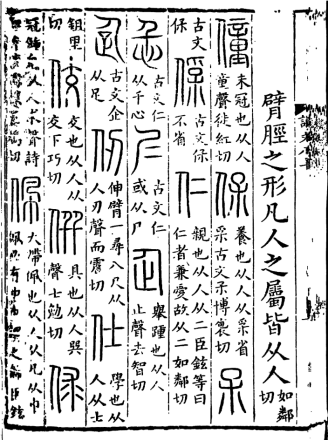 臂脛之形凡人之屬皆从人如鄰切
僮未冠也从人童聲徒紅切保養也从人从采省采古文孚博裒切呆
古文保㑶古文保不省仁親也从人从二臣鉉等曰仁者兼愛故从二如鄰切
忎古文仁从千心𡰥古文仁或从尸企舉踵也从人止聲去智切
𧿇古文企从足仞伸臂一尋八尺从人刃聲而震切仕學也从人从士
鉏里切佼交也从人从交下巧切僎具也从人巽聲士勉切俅
冠飾皃从人求聲詩佩大帶佩也从人从凡从巾佩必有巾巾謂之飾臣鉉